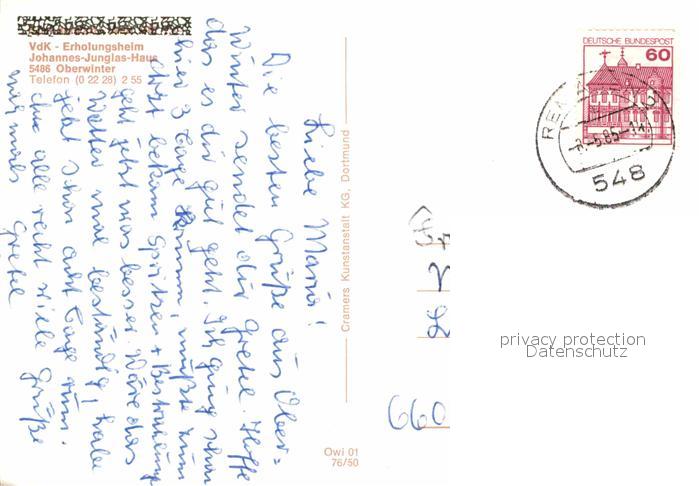 VdK - Erholungsheim
Johannes-Junglas-Haus
5486 Oberwinter
Telefon (0 22 28) 2 55
Liebe Maria!
Die besten Grüße aus Ober-
winter sendet dir Gretel. Hoffe
das es dir gut geht. Ich ging schon
hier 3 Tage krumm, mußte zum
Arzt bekam Spritzen + Bestrahlung
geht jetzt was besser. Wäre das
Wetter mal beständig, habe
jetzt schon acht Tage rum.
alle recht viele Grüße
nochmals Gretel
Cramers Kunstanstalt KG, Dortmund
Owi 01
76/50
DEUTSCHE BUNDESPOST
60
REM
5.85-14
548
660
privacy protection
Datenschutz